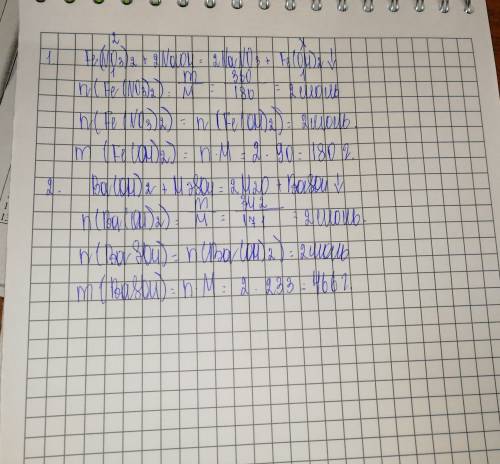 2 x
1. Fe(NO3)2 + 2NaOH = 2NaNO3 + Fe(OH)2 ↓
1 1
n(Fe(NO3)2) = m/M = 360/180 = 2 моль
n(Fe(NO3)2) = n(Fe(OH)2) = 2 моль.
m(Fe(OH)2) = n·M = 2·90 = 180 г.
2. Ba(OH)2 + H2SO4 = 2H2O + BaSO4 ↓
n(Ba(OH)2) = m/M = 342/171 = 2 моль.
n(BaSO4) = n(Ba(OH)2) = 2 моль
m(BaSO4) = n·M = 2·233 = 466 г.